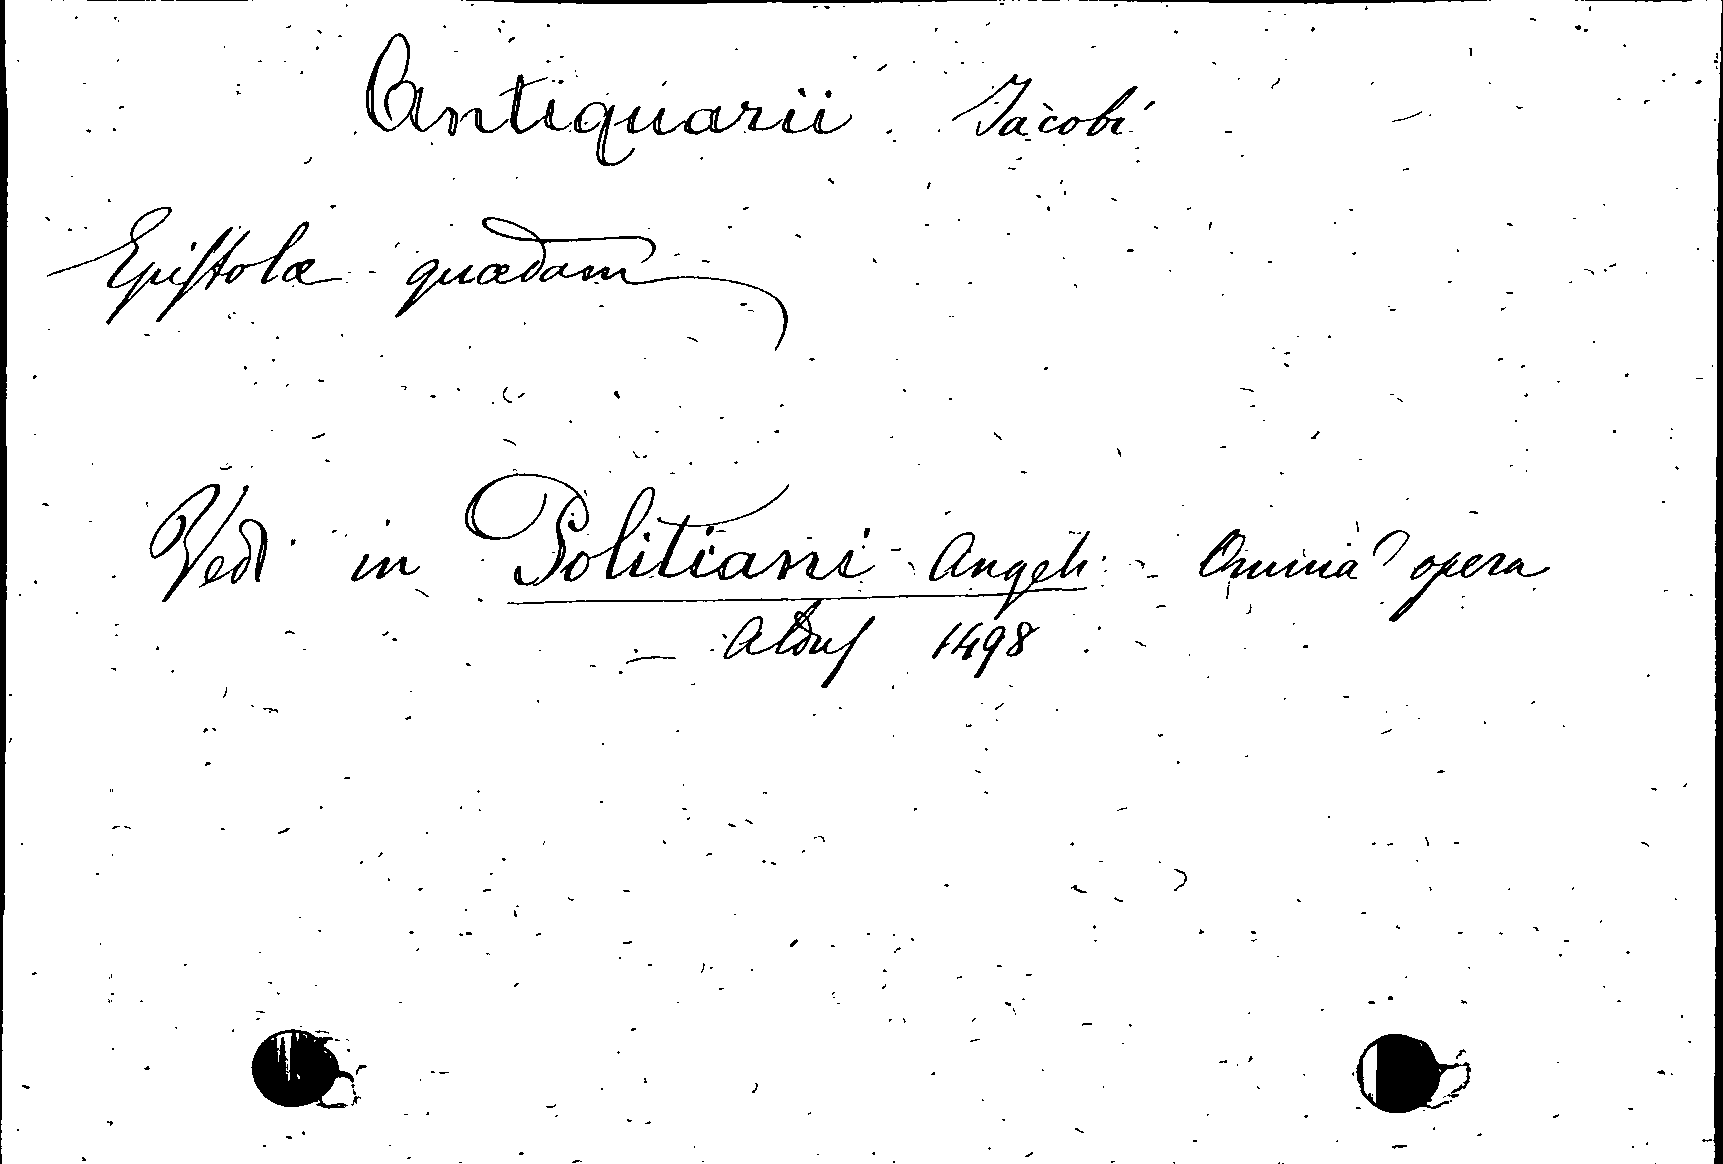 Antiquarii Jacobi
Epistolæ quædam
Vedi in Politiani Angeli - Omnia opera
- Aldus 1498